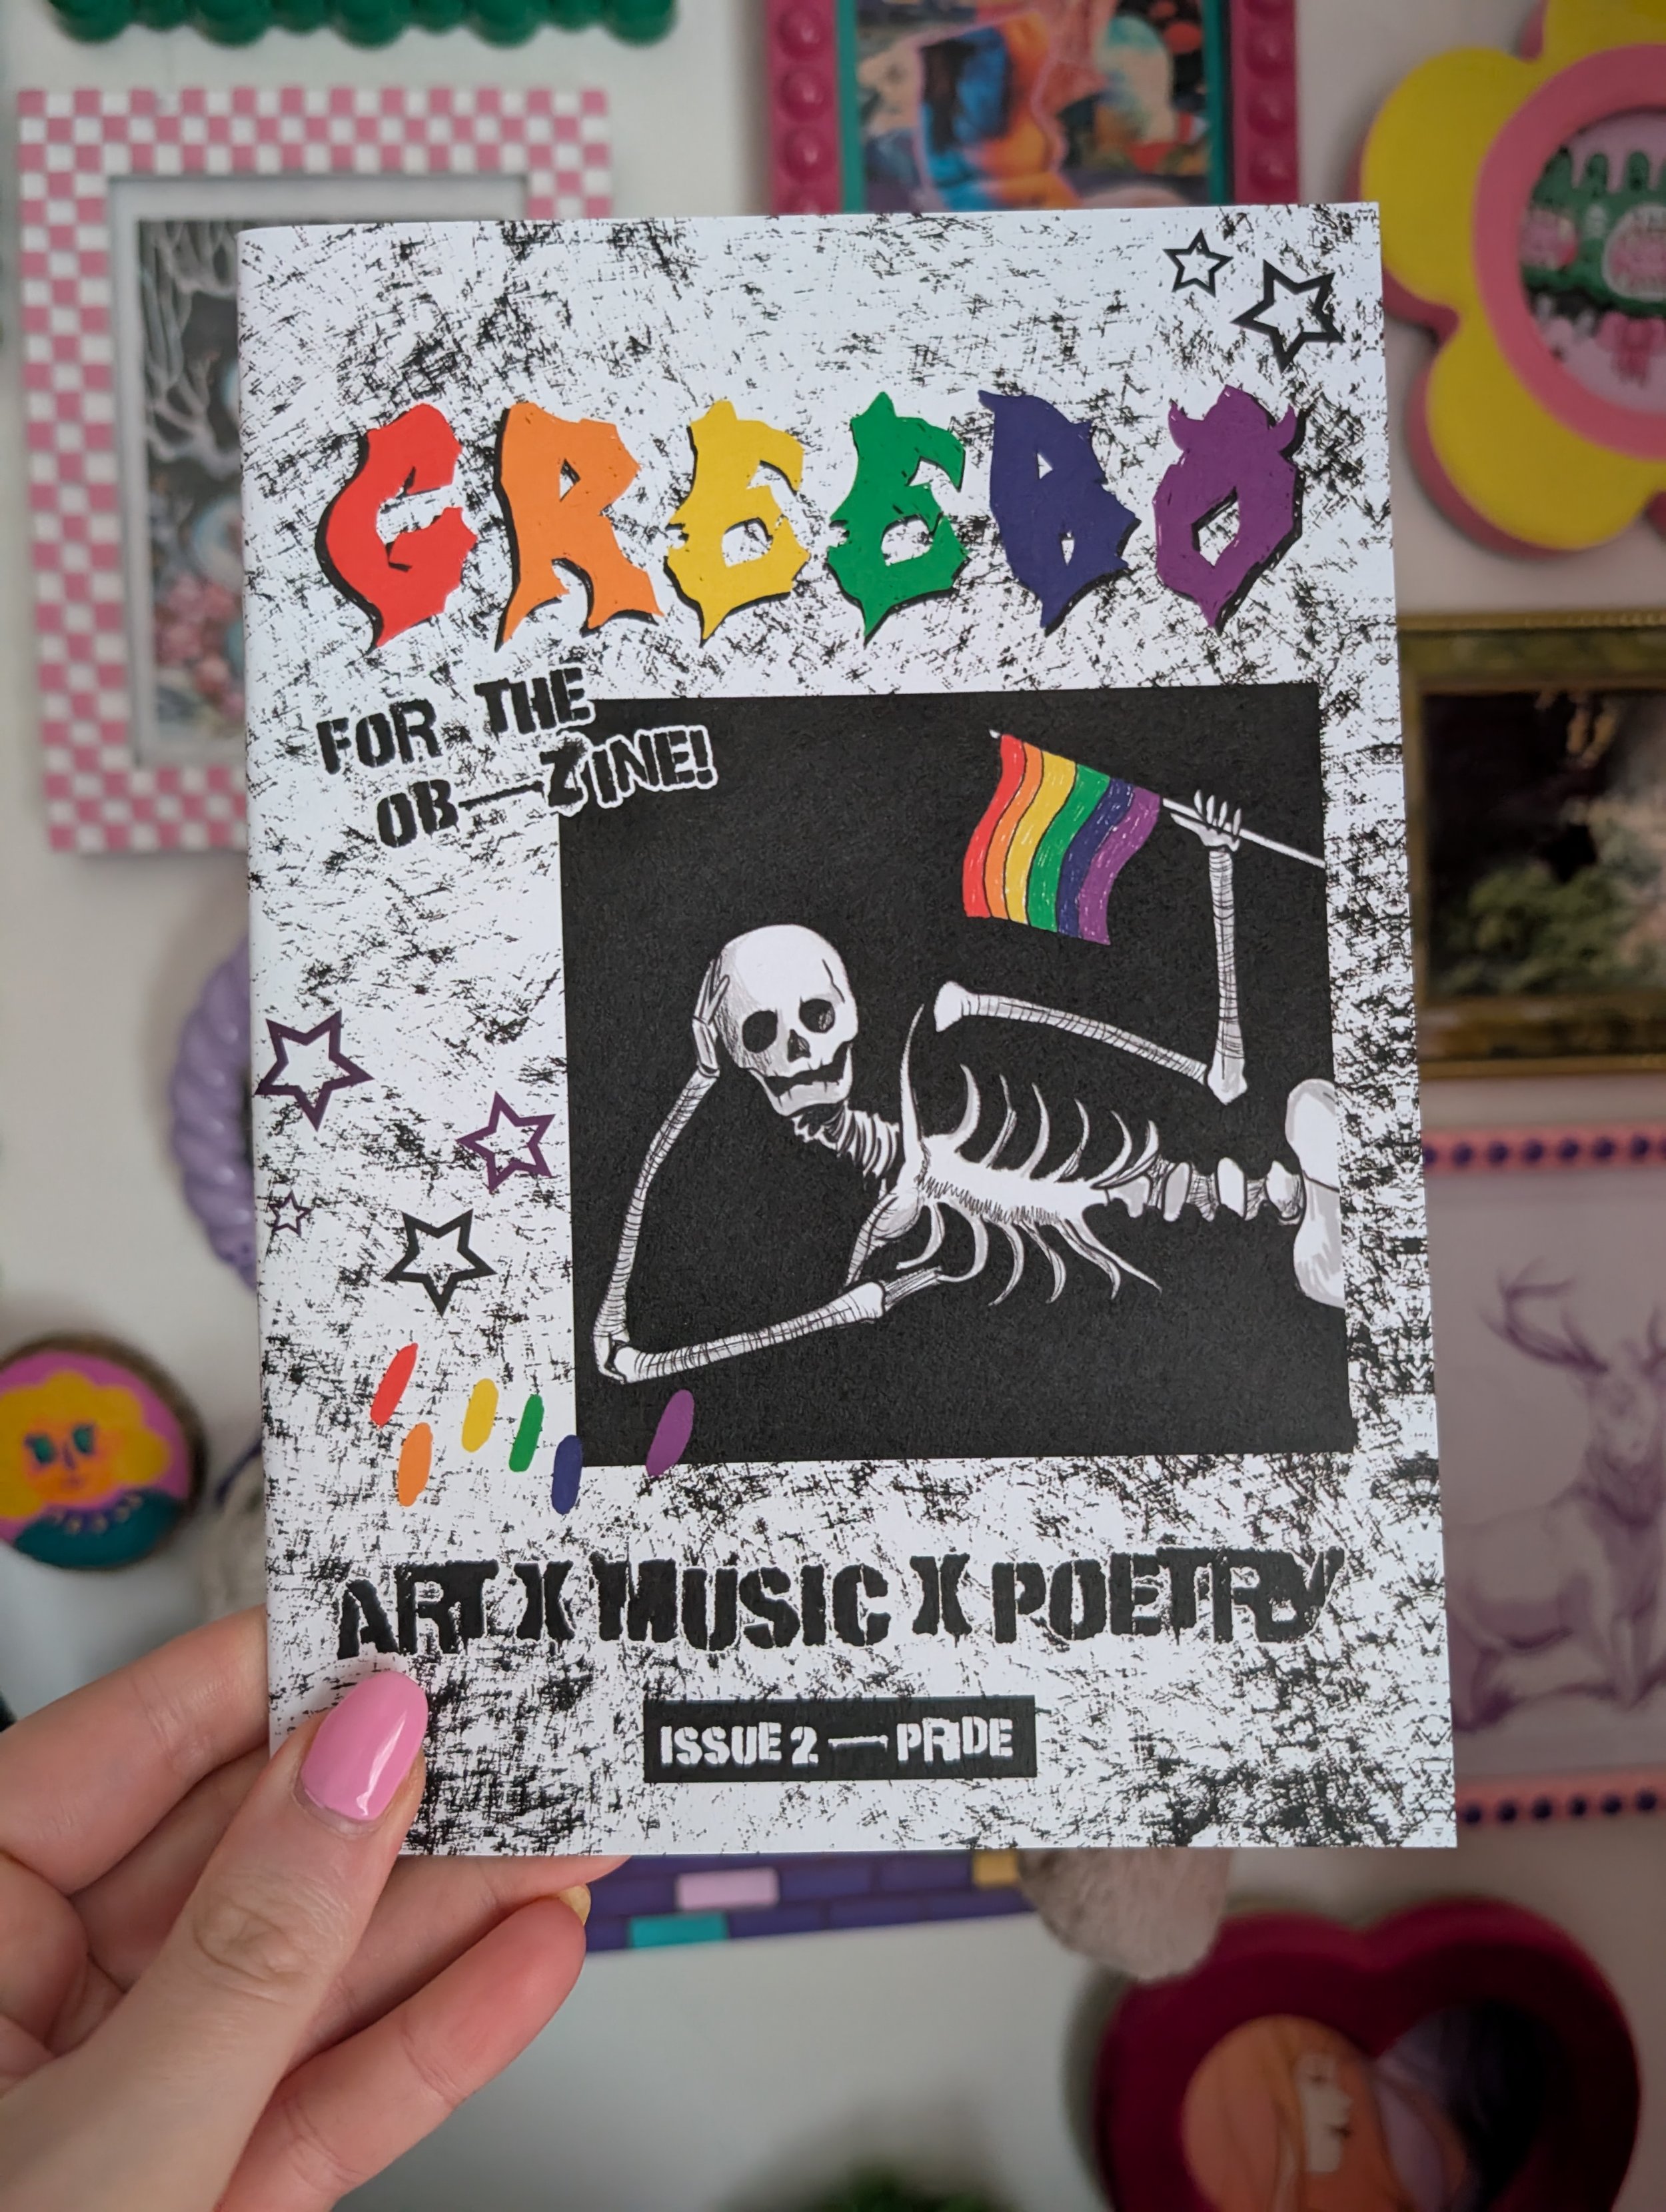 GREEBO
FOR THE
OB—ZINE!
ART X MUSIC X POETRY
ISSUE 2 — PRIDE